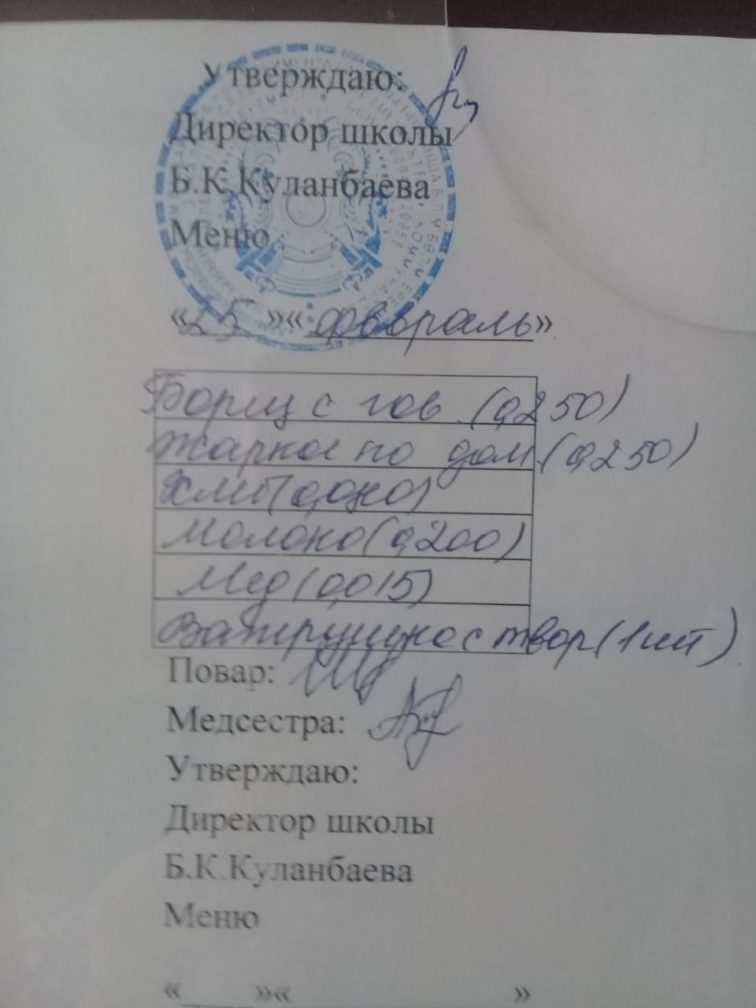 Утверждаю:
Директор школы
Б.К.Куланбаева
Меню
«25»«февраль»
Борщ с гов (0,250)
Жаркое по дом (0,250)
Хлеб
Молоко (0,200)
Мед (0,015)
Ватрушка с твор (1 шт)
Повар:
Медсестра:
Утверждаю:
Директор школы
Б.К.Куланбаева
Меню
«____»«____________»